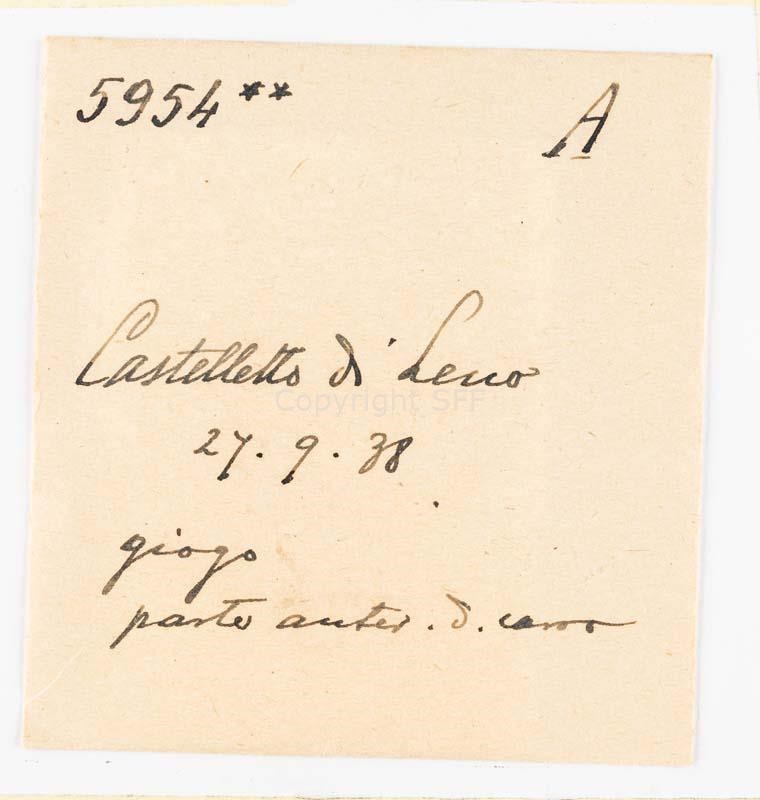 5954** A
Castelletto di Leno
Copyright SFF
27. 9. 38
giogo
parte anter. d. carro